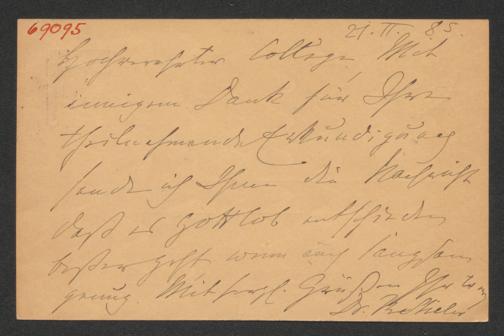 69095
21. II. 85.
Hochverehrter College, Mit
innigem Dank für Ihre
theilnehmende Erkundigung
sende ich Ihnen die Nachricht
daß es gottlob entschieden
besser geht wenn auch langsam
genug. Mit herzl. Grüßen Ihr
Dr.